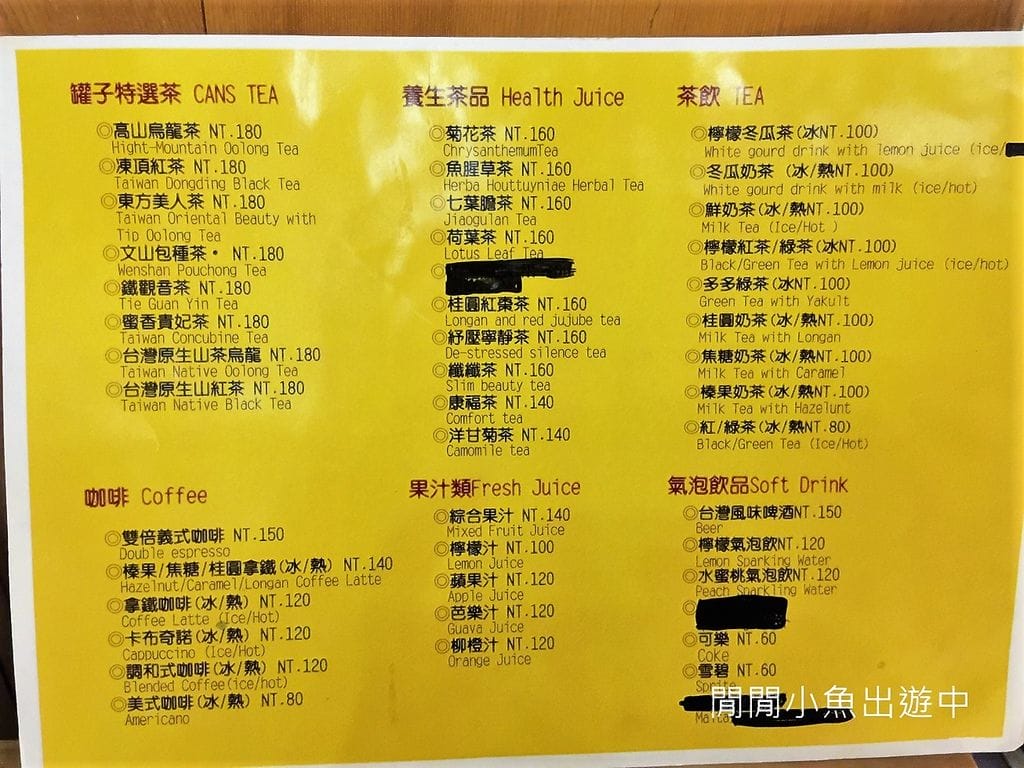 罐子特選茶 CANS TEA
◎高山烏龍茶 NT.180
Hight-Mountain Oolong Tea
◎凍頂紅茶 NT.180
Taiwan Dongding Black Tea
◎東方美人茶 NT.180
Taiwan Oriental Beauty with
Tip Oolong Tea
◎文山包種茶• NT.180
Wenshan Pouchong Tea
◎鐵觀音茶 NT.180
Tie Guan Yin Tea
◎蜜香貴妃茶 NT.180
Taiwan Concubine Tea
◎台灣原生山茶烏龍 NT.180
Taiwan Native Oolong Tea
◎台灣原生山紅茶 NT.180
Taiwan Native Black Tea
養生茶品 Health Juice
◎菊花茶 NT.160
ChrysanthemumTea
◎魚腥草茶 NT.160
Herba Houttuyniae Herbal Tea
◎七葉膽茶 NT.160
Jiaogulan Tea
◎荷葉茶 NT.160
Lotus Leaf Tea
◎
◎桂圓紅棗茶 NT.160
Longan and red jujube tea
◎紓壓寧靜茶 NT.160
De-stressed silence tea
◎纖纖茶 NT.160
Slim beauty tea
◎康福茶 NT.140
Comfort tea
◎洋甘菊茶 NT.140
Camomile tea
茶飲 TEA
◎檸檬冬瓜茶(冰NT.100)
White gourd drink with lemon juice (ice/
◎冬瓜奶茶 (冰/熱NT.100)
White gourd drink with milk (ice/hot)
◎鮮奶茶(冰/熱NT.100)
Milk Tea (Ice/Hot )
◎檸檬紅茶/綠茶(冰NT.100)
Black/Green Tea with Lemon juice (ice/hot)
◎多多綠茶(冰NT.100)
Green Tea with Yakult
◎桂圓奶茶(冰/熱NT.100)
Milk Tea with Longan
◎焦糖奶茶(冰/熱NT.100)
Milk Tea with Caramel
◎榛果奶茶(冰/熱NT.100)
Milk Tea with Hazelunt
◎紅/綠茶(冰/熱NT.80)
Black/Green Tea (Ice/Hot)
咖啡 Coffee
◎雙倍義式咖啡 NT.150
Double espresso
◎榛果/焦糖/桂圓拿鐵(冰/熱) NT.140
Hazelnut/Caramel/Longan Coffee Latte
◎拿鐵咖啡(冰/熱) NT.120
Coffee Latte (Ice/Hot)
◎卡布奇諾(冰/熱) NT.120
Cappuccino (Ice/Hot)
◎調和式咖啡(冰/熱) NT.120
Blended Coffee(ice/hot)
◎美式咖啡(冰/熱) NT.80
Americano
果汁類Fresh Juice
◎綜合果汁 NT.140
Mixed Fruit Juice
◎檸檬汁 NT.100
Lemon Juice
◎蘋果汁 NT.120
Apple Juice
◎芭樂汁 NT.120
Guava Juice
◎柳橙汁 NT.120
Orange Juice
氣泡飲品Soft Drink
◎台灣風味啤酒NT.150
Beer
◎檸檬氣泡飲NT.120
Lemon Sparking Water
◎水蜜桃氣泡飲NT.120
Peach Sparkling Water
◎
◎可樂 NT.60
Coke
◎雪碧 NT.60
Sprite
閒閒小魚出遊中